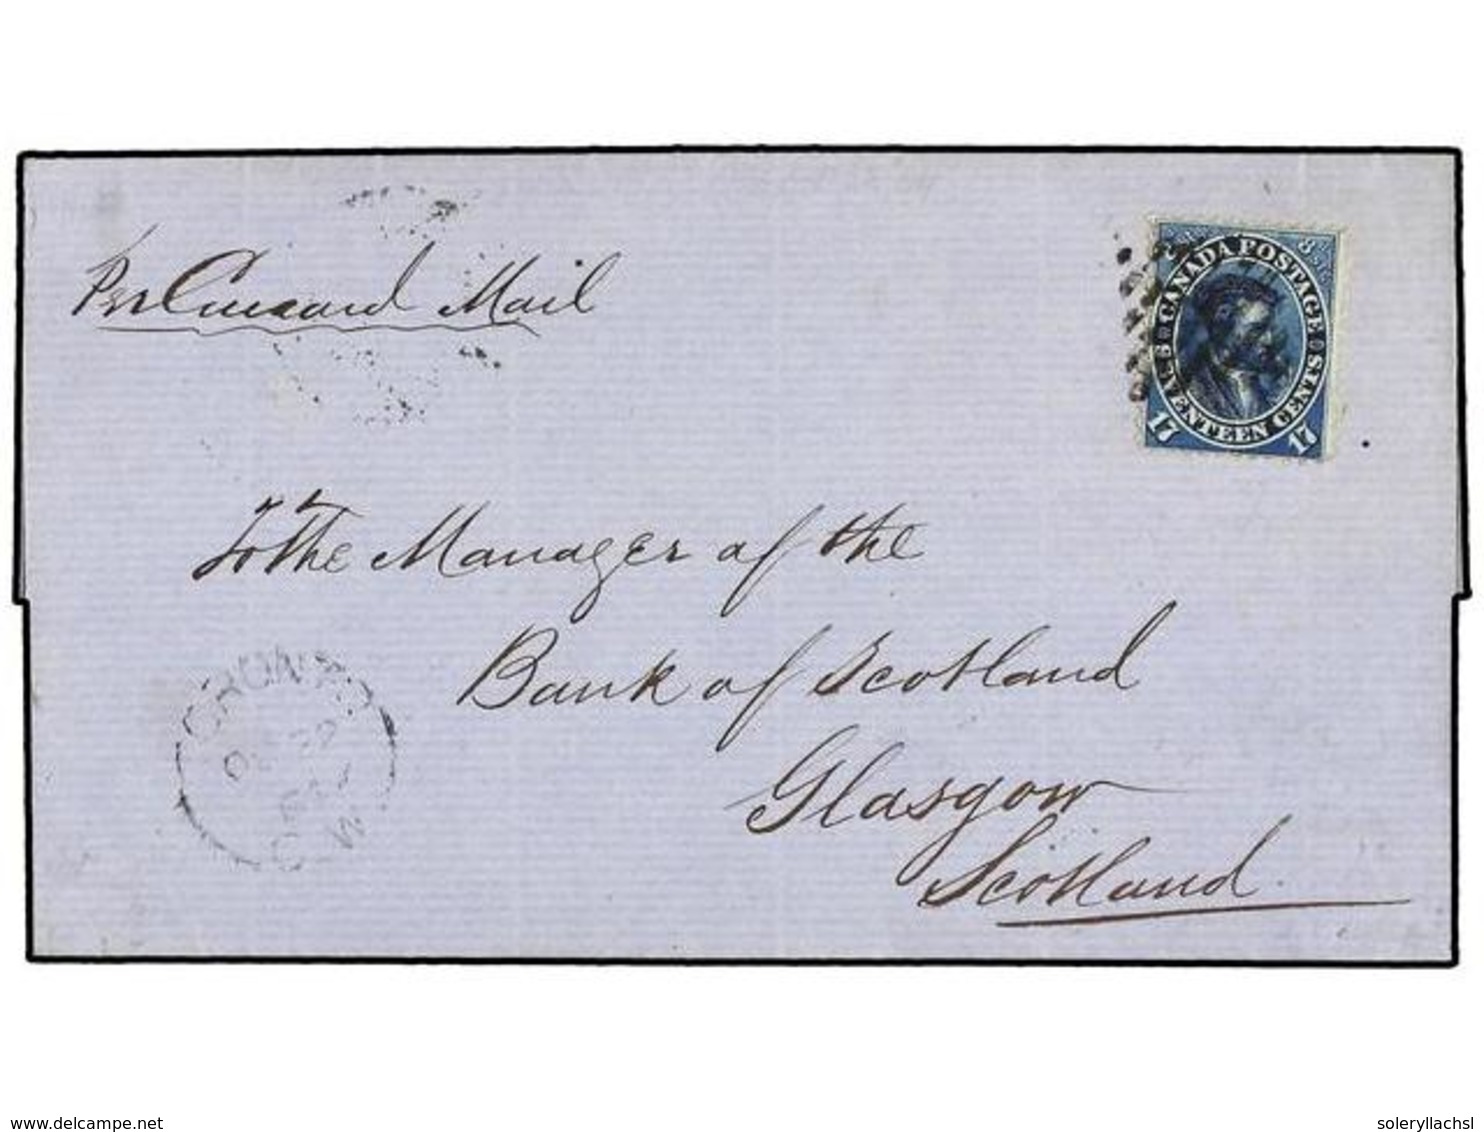 Per Cunard Mail
CANADA POSTAGE
8 d STG
SEVENTEEN CENTS
17 17
To the Manager of the
Bank of Scotland
Glasgow
Scotland
C.W
delcampe.net
soleryllachsl